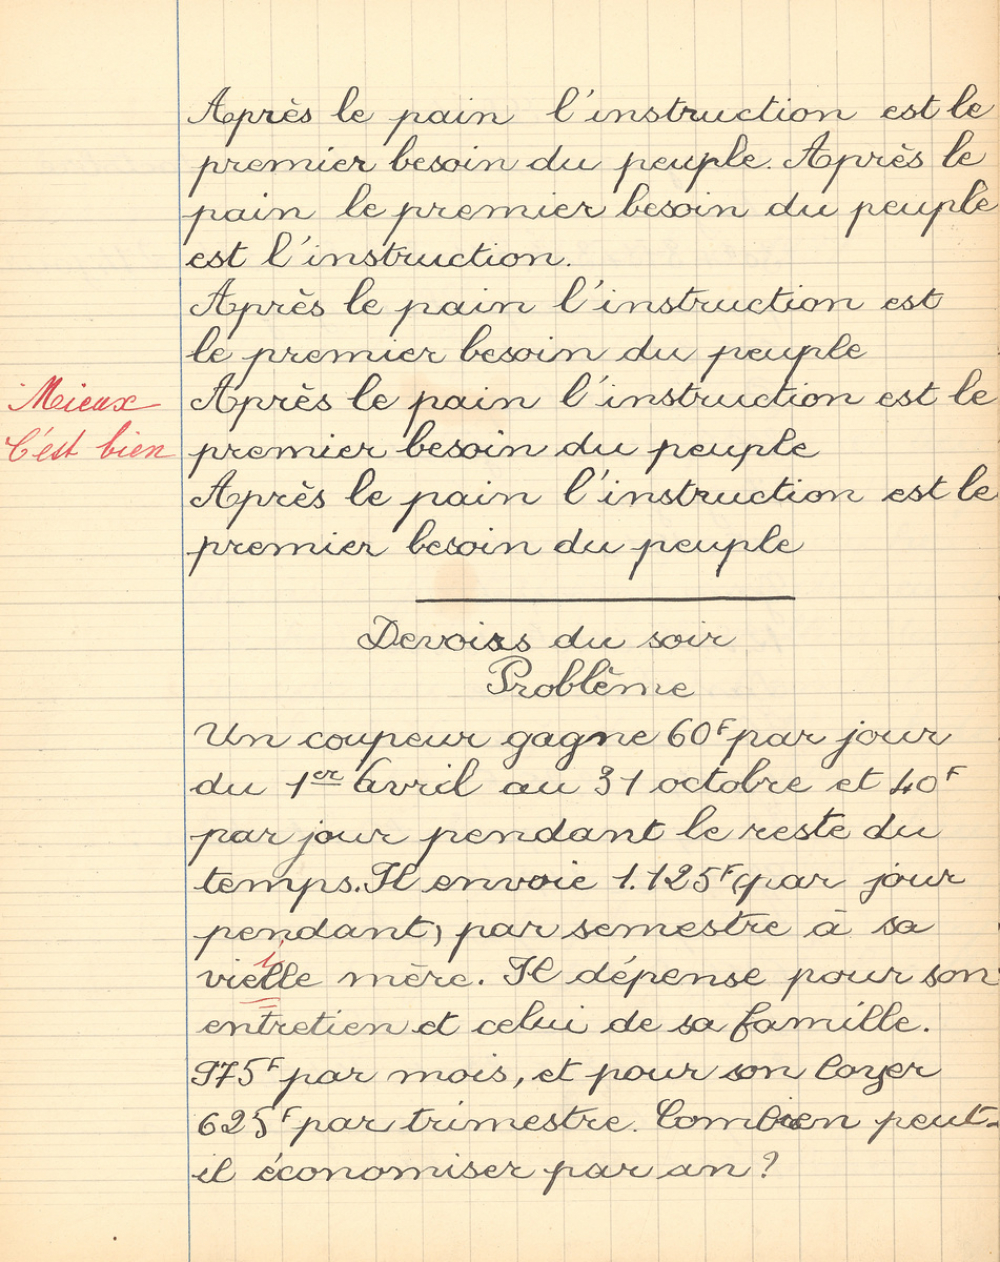 Après le pain l'instruction est le
premier besoin du peuple. Après le
pain le premier besoin du peuple
est l'instruction.
Après le pain l'instruction est
le premier besoin du peuple
Mieux
Après le pain l'instruction est le
C'est bien
premier besoin du peuple
Après le pain l'instruction est le
premier besoin du peuple
Devoirs du soir
Problème
Un coupeur gagne 60F par jour
du 1er Avril au 31 octobre et 40F
par jour pendant le reste du
temps. Il envoie 1.125F (par jour
pendant) par semestre à sa
i
vielle mère. Il dépense pour son
entretien et celui de sa famille.
975F par mois, et pour son loyer
625F par trimestre. Combien peut-
il économiser par an ?